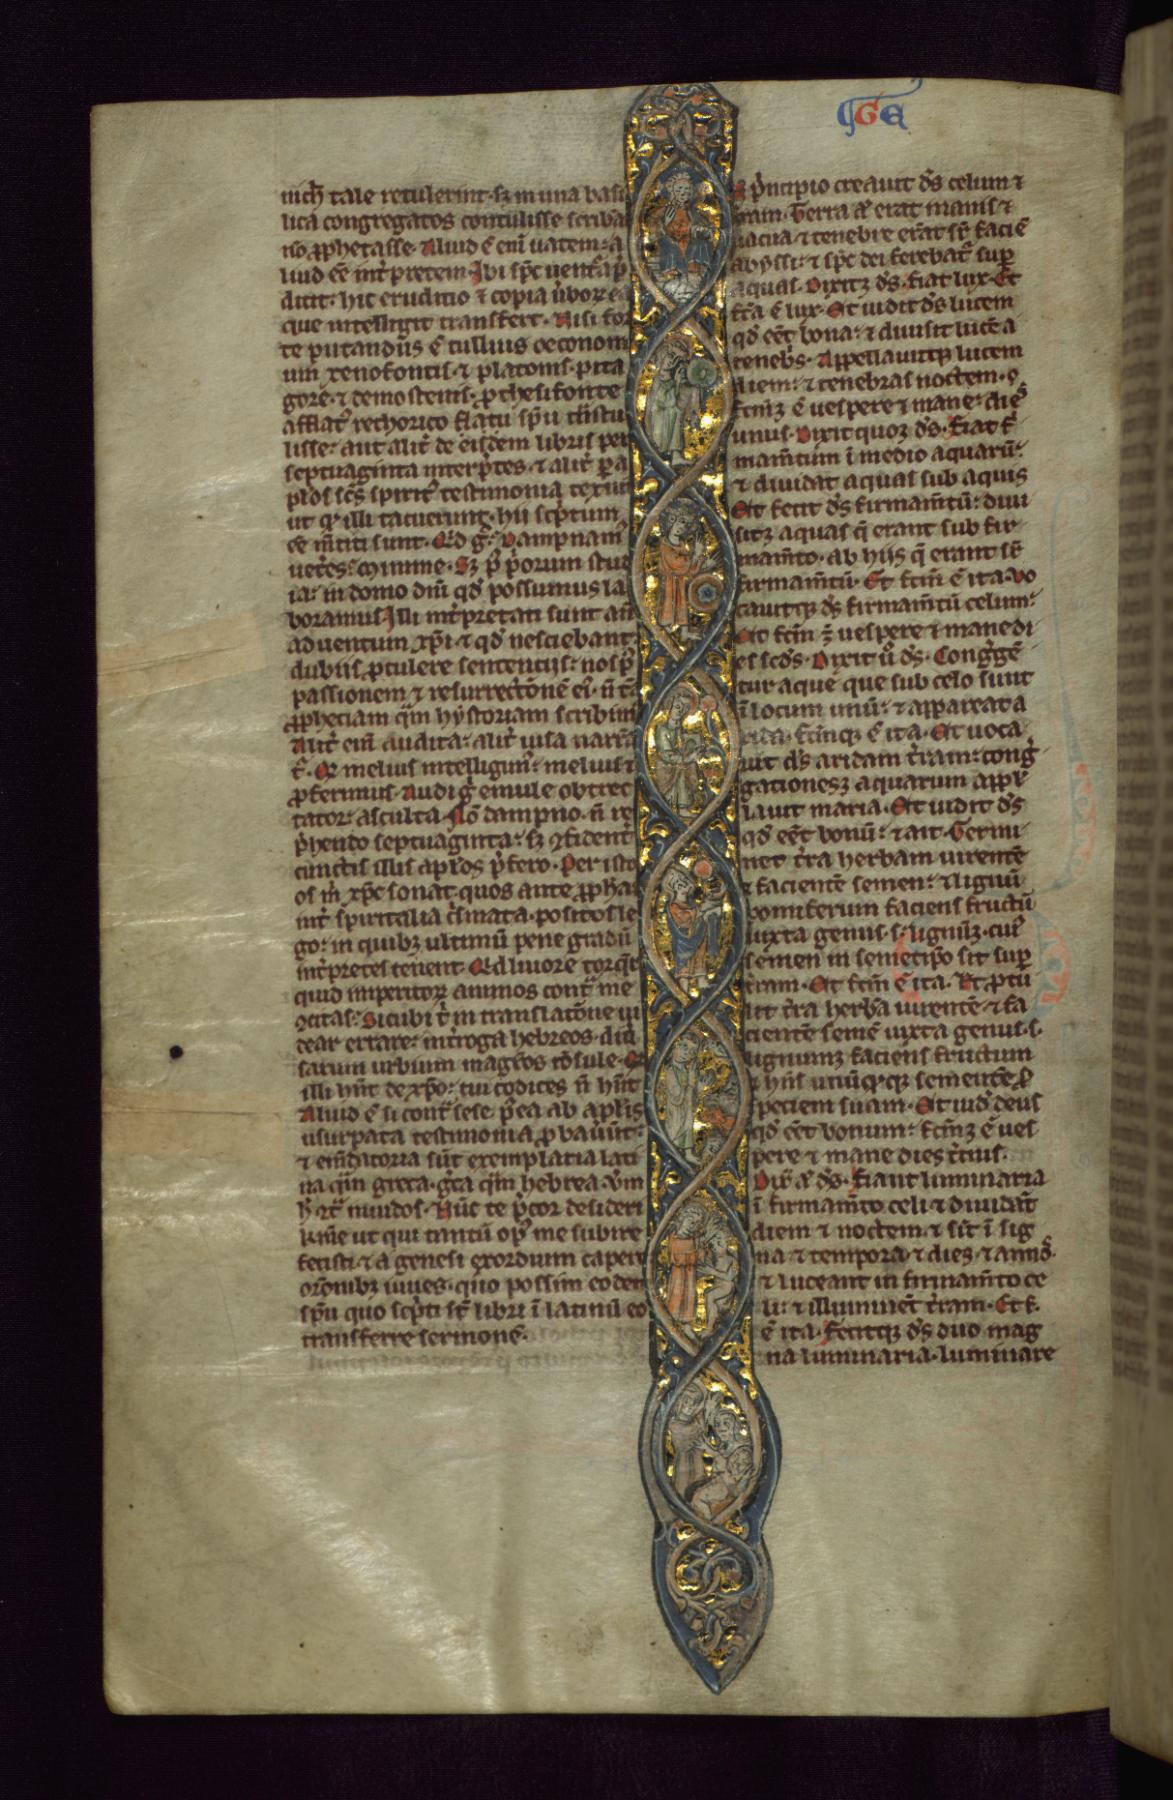 GE
nich tale retulerint· sz in una basi
lica congregatos contulisse scriba
no prophetasse· Aliud ē eni uatem· a
liud eē int̄pretem· Ibi spc uentᵃ p̄
dicit· hic eruditio ⁊ copia ūborꝝ ea
que intelligit transfert· Nisi for
te putandus ē tullius oeconom
um xenofontis· ⁊ platonis· pita
gore· ⁊ demostenis· p thesifonte
afflatᵒ rethorico
lisse· aut alit̄ de eisdem libris per
septuaginta interp̄tes· ⁊ alit̄ p a
plos scs spiritᵒ testimonia texuit
ut qᵈ illi tacuerunt· hii scptum
eē mentiti sunt· Qᵈ gᵒ· Dampnam
uetēs· minime· Sz pᵗ p̄orum stud
ia· in domo dni qᵈ possumus la
boramus· Illi int̄pretati sunt an̄
aduentum xp̄i ⁊ qᵈ nesciebant
dubiis ptulere sententiis· nos pᵗ
passionem ⁊ resurrectōnē eiᵒ· n̄ t̄
propheciam qᵃm hystoriam scribim
Alit̄ enī audita· alit̄ uisa narrā
t̄· Qᵈ melius intelligimᵒ· melius ⁊
pferimus· Audi gᵒ emule obtrec
tator· asculta· Nō dampno· n̄ re
p̄hendo septuaginta· sz ꝯfident̄
cunctis illis aplos p̄fero· Per isto
os m̄ xp̄c sonat· quos ante propha
int̄ spiritalia c̄smata· positos le
go· in quibꝫ ultimū pene gradū
int̄pretes tenent· Qᵈ liuore torq̄r̄
quid imperitorꝝ animos contᵃ me
ꝯcitas· Sicubi t̄ in translatōne ui
dear errare· int̄roga hebreos· diū
sarum urbium magr̄os cōsule· Qᵈ
illi hn̄t de xp̄o· tui codices n̄ hn̄t
Aliud ē si contᵃ sese p̄ea ab aplis
usurpata testimonia pbauīnt·
⁊ em̄datiora sūt exemplaria lati
na qᵃm greca· gᵉca qᵃm hebrea
h̄ ꝯtᵃ inuidos· Nūc te p̄cor desideri
kr̄me ut qui tantū opᵒ me subire
fecisti· ⁊ a genesi exordium capere
orōnibꝫ iuues· quo possim eodem
spū quo scp̄ti st̄ libri ī latinū eo
transferre sermonē·
p̄ncipio creauit ds celum ⁊
ram· Terra aͫ erat inanis ⁊
uacua· ⁊ tenebre erāt sr̄ faciē
abyssi· ⁊ spc dei ferebatᵒ supᵉ
aquas· Dixitꝗ ds· Fiat lux· Et
fc̄a ē lux· Et uidit ds lucem
qᵈ eēt bona· ⁊ diuisit lucē a
tenebrs· Appellauitꝗ lucem
diem· ⁊ tenebras noctem·
fcm̄ꝗ ē uespere ⁊ mane· dies
unus· Dixit quoꝗ ds· Fiat f̄
mamtum ī medio aquarū·
⁊ diuidat aquas sub aquis
Et fecit ds firmamtū· diui
sitꝗ aquas q̄ erant sub fir
mamto· ab hiis q̄ erant sr̄
firmamtū· Et fcm̄ ē ita· Vo
cauitꝗ ds firmamtū celum·
Et fcm̄ ꝫ uespere ⁊ mane di
es scds· Dixit ū ds· Congᵉge
tur aque que sub celo sunt
ī locum unū· ⁊ appareat a
rida· fcm̄ꝗ ē ita· Et uoca
uit ds aridam tr̄am· congᵉ
gationesꝗ aquarum appel
lauit maria· Et uidit ds
qᵈ eēt bonū· ⁊ ait· Germi
net tr̄a herbam uirentē
⁊ facientē semen· ⁊ lignū
pomiferum faciens fructū
iuxta genus s· lignūꝗ· cuiᵒ
semen in semetip̄o sit supᵉ
tr̄am· Et fcm̄ ē ita· Et p̄tu
lit tr̄a herbā uirentē ⁊ fa
cientē semē iuxta genus s·
lignumꝗ faciens fructum
⁊ hn̄s unūqᵈqꝫ sementē
speciem suam· Et uidᵗ deus
qᵈ eēt bonum· fcm̄ꝗ ē ues
pere ⁊ mane dies t̄cius·
Dixᵗ aͫ ds· Fiant luminaria
ī firmamto celi ⁊ diuidāt
diem ⁊ noctem· ⁊ sīt ī sig
na ⁊ tempora· ⁊ dies· ⁊ annos·
⁊ luceant in firmamto ce
li· ⁊ illuminēt tr̄am· Et f·
ē ita· Fecitꝗ ds duo mag
na luminaria· luminare